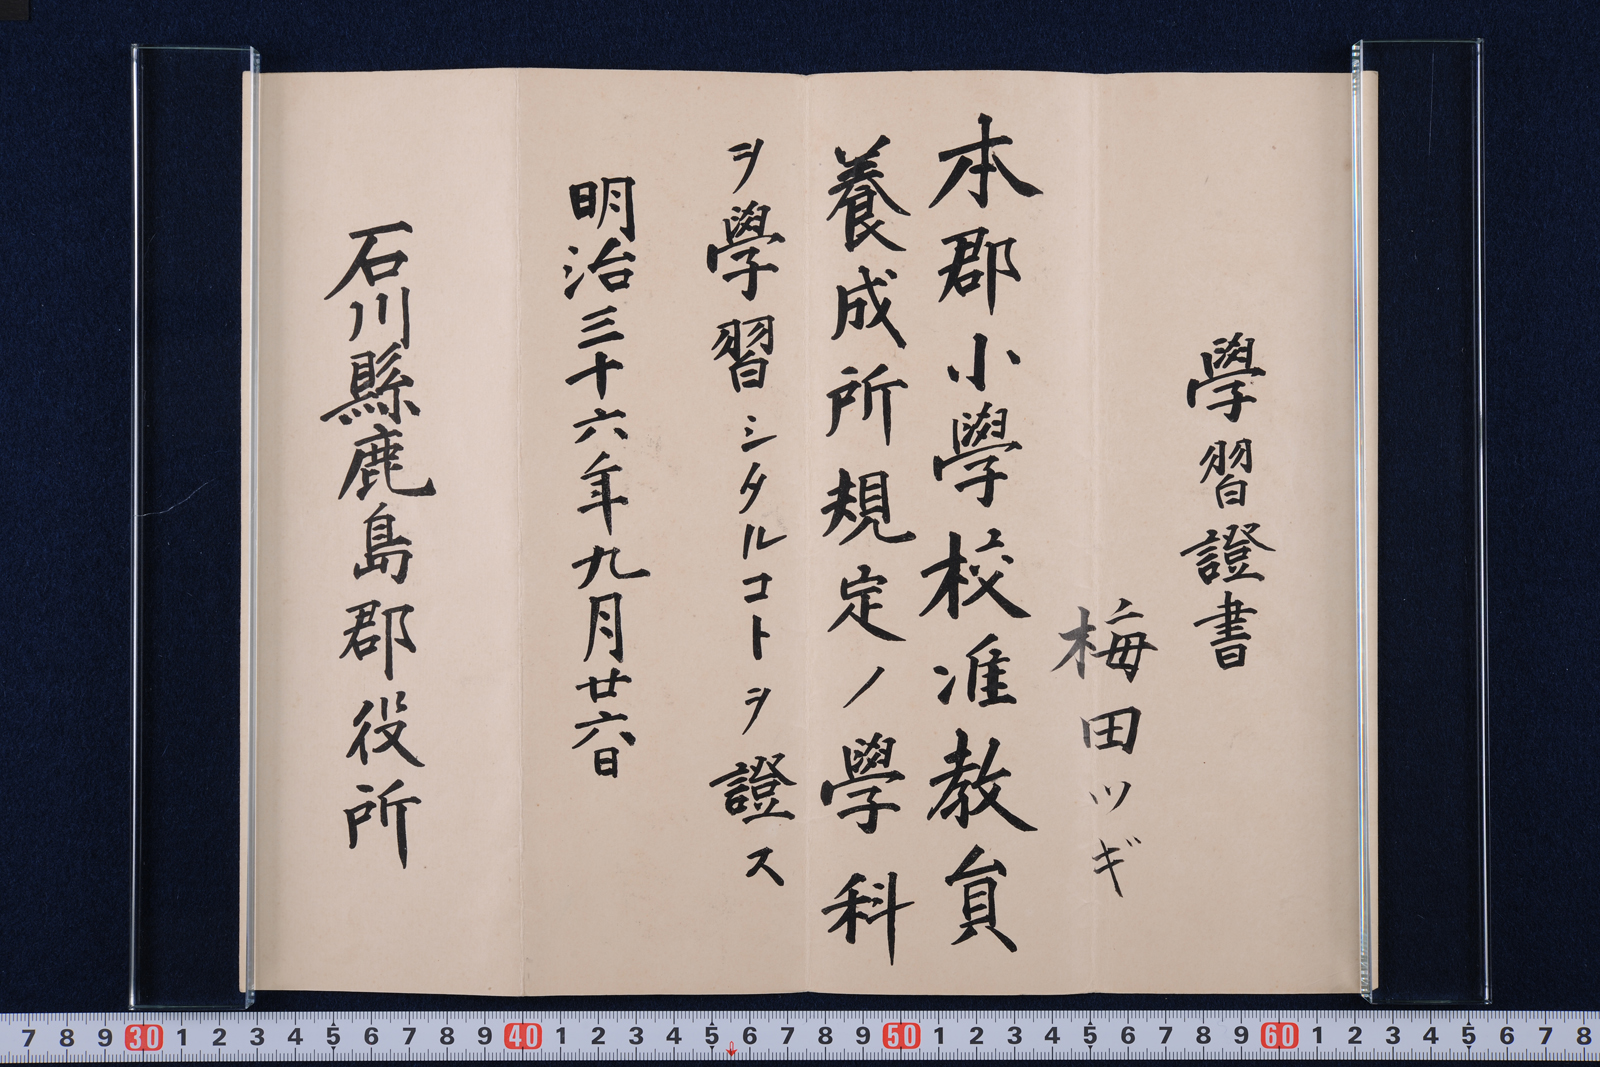 學習證書
梅田ツギ
本郡小學校准教員
養成所規定ノ學科
ヲ學習シタルコトヲ證ス
明治三十六年九月廿六日
石川縣鹿島郡役所
7 8 9 30 1 2 3 4 5 6 7 8 9 40 1 2 3 4 5 6 7 8 9 50 1 2 3 4 5 6 7 8 9 60 1 2 3 4 5 6 7 8